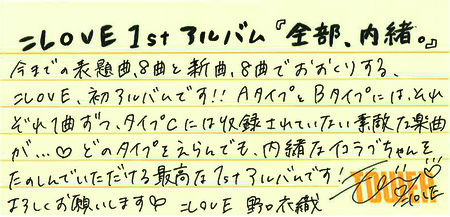 =LOVE 1st アルバム『全部、内緒。』
今までの表題曲、8曲と新曲、8曲でおおくりする、
=LOVE、初アルバムです!! AタイプとBタイプには、それ
ぞれ1曲ずつ、タイプCには収録されていない素敵な楽曲
が...♡ どのタイプをえらんでも、内緒なイコラブちゃんを
たのしんでいただける最高な1stアルバムです!
よろしくお願いします♡ =LOVE 野口衣織
=LOVE
TOWER